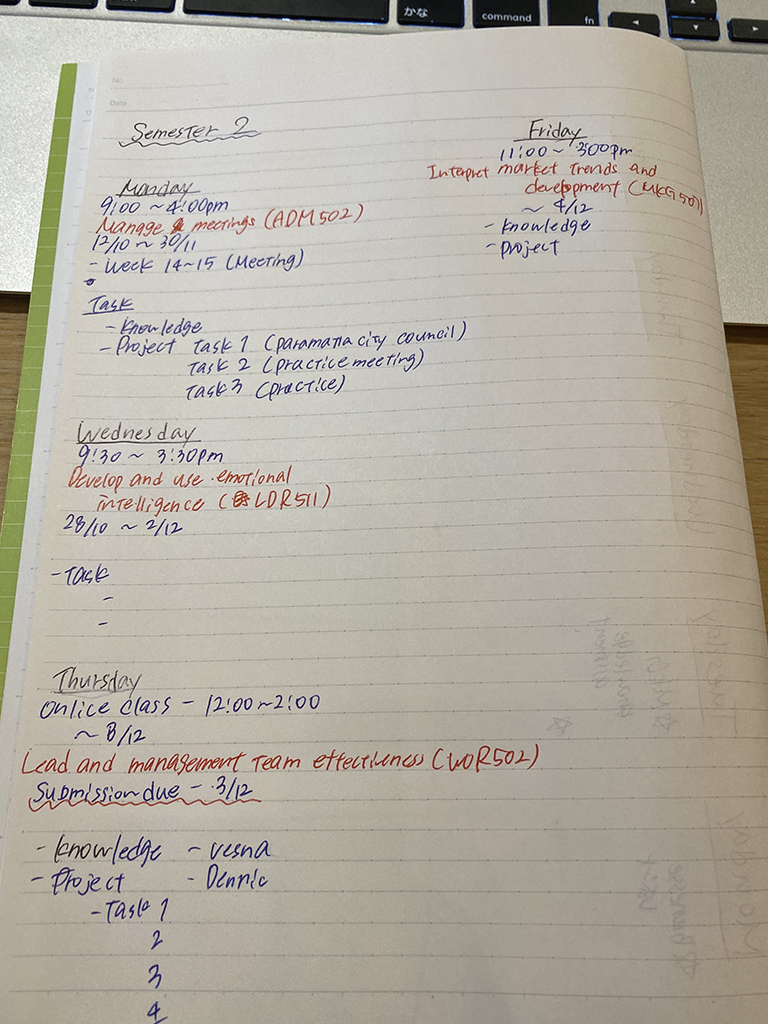 かな
command
fn
No.
Date
Semester 2
Monday
9:00 ~ 4:00pm
Manage meetings (ADM502)
12/10 ~ 30/11
- Week 14~15 (Meeting)
Task
- Knowledge
- Project Task 1 (paramatta city council)
Task 2 (practice meeting)
Task 3 (practice)
Wednesday
9:30 ~ 3:30pm
Develop and use emotional
intelligence (LDR511)
28/10 ~ 2/12
- Task
-
-
Thursday
Onlice class - 12:00~2:00
~ 8/12
Lead and management Team effectiveness (WOR502)
Submission due - 3/12
- Knowledge - vesna
- Project - Dennic
- Task 1
2
3
4
Friday
11:00 ~ 3:00pm
Interpret market trends and
development (MKG501)
~ 4/12
- Knowledge
- project